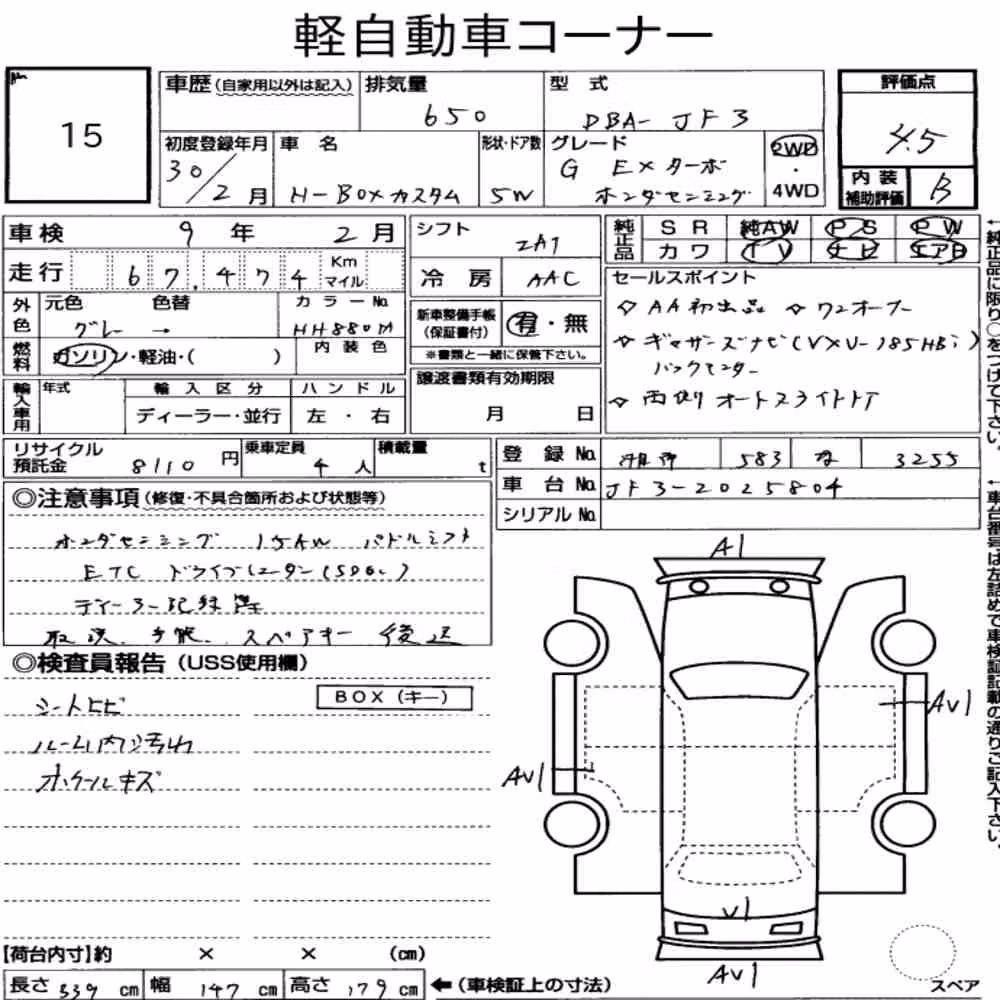 軽自動車コーナー
15
車歴(自家用以外は記入) 排気量 型 式 評価点
650 DBA- JF3 4.5
初度登録年月 車 名 形状・ドア数 グレード 2WD
30/2月 H-BOXカスタム 5W G EXターボ ・
ホンダセンシング 4WD
内装 補助評価 B
車検 9 年 2 月
走行 67,474 Km マイル
シフト
冷房 AAC
純正品 SR 純AW PS PW
カワ TV ナビ エアB
外色 元色 色替 カラーNo.
グレー → HH880M
燃料 ガソリン・軽油・( ) 内装色
新車整備手帳 (保証書付) 有・無
※書類と一緒に保管下さい。
セールスポイント
☆ AA初出品 ☆ ワンオーナー
☆ ギャザーズナビ(VXU-185HBi)
バックモニター
☆ 両側オートスライドドア
輸入車用 年式 輸入区分 ハンドル
ディーラー・並行 左・右
譲渡書類有効期限
月 日
リサイクル預託金 8110 円 乗車定員 4 人 積載量 t
登録No. 583 3255
車台No. JF3-2025804
シリアルNo.
◎注意事項(修復・不具合箇所および状態等)
ホンダセンシング 15AW パドルシフト
ETC ドライブレコーダー
ディーラー記録簿
取説、手帳、スペアキー 後送
◎検査員報告(USS使用欄)
BOX(キー)
シートヒビ
ルーム内汚れ
ホイールキズ
A1
AV1
AV1
V1
AV1
【荷台内寸】約 × × (cm)
長さ 339 cm 幅 147 cm 高さ 179 cm ←(車検証上の寸法)
スペア
←純正品に限り○をつけて下さい。
←車台番号は左詰めで車検証記載の通りご記入下さい。